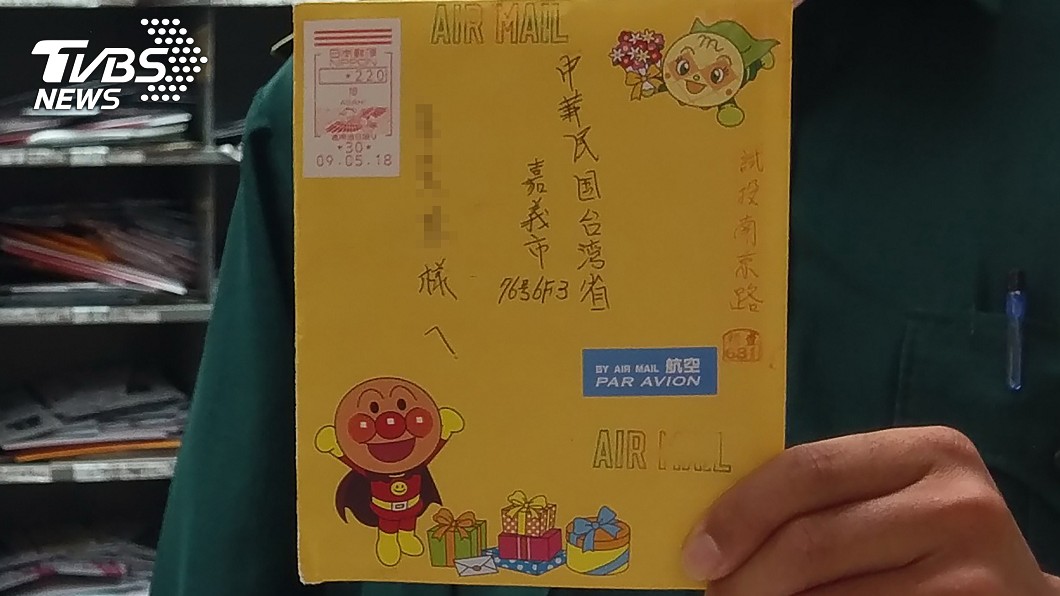 TVBS
NEWS
AIR MAIL
日本郵便
NIPPON
220
ASAHI
30
09.05.18
中華民国台湾省
嘉義市
76号6F3
様
へ
試投南京路
631
BY AIR MAIL 航空
PAR AVION
AIR MAIL